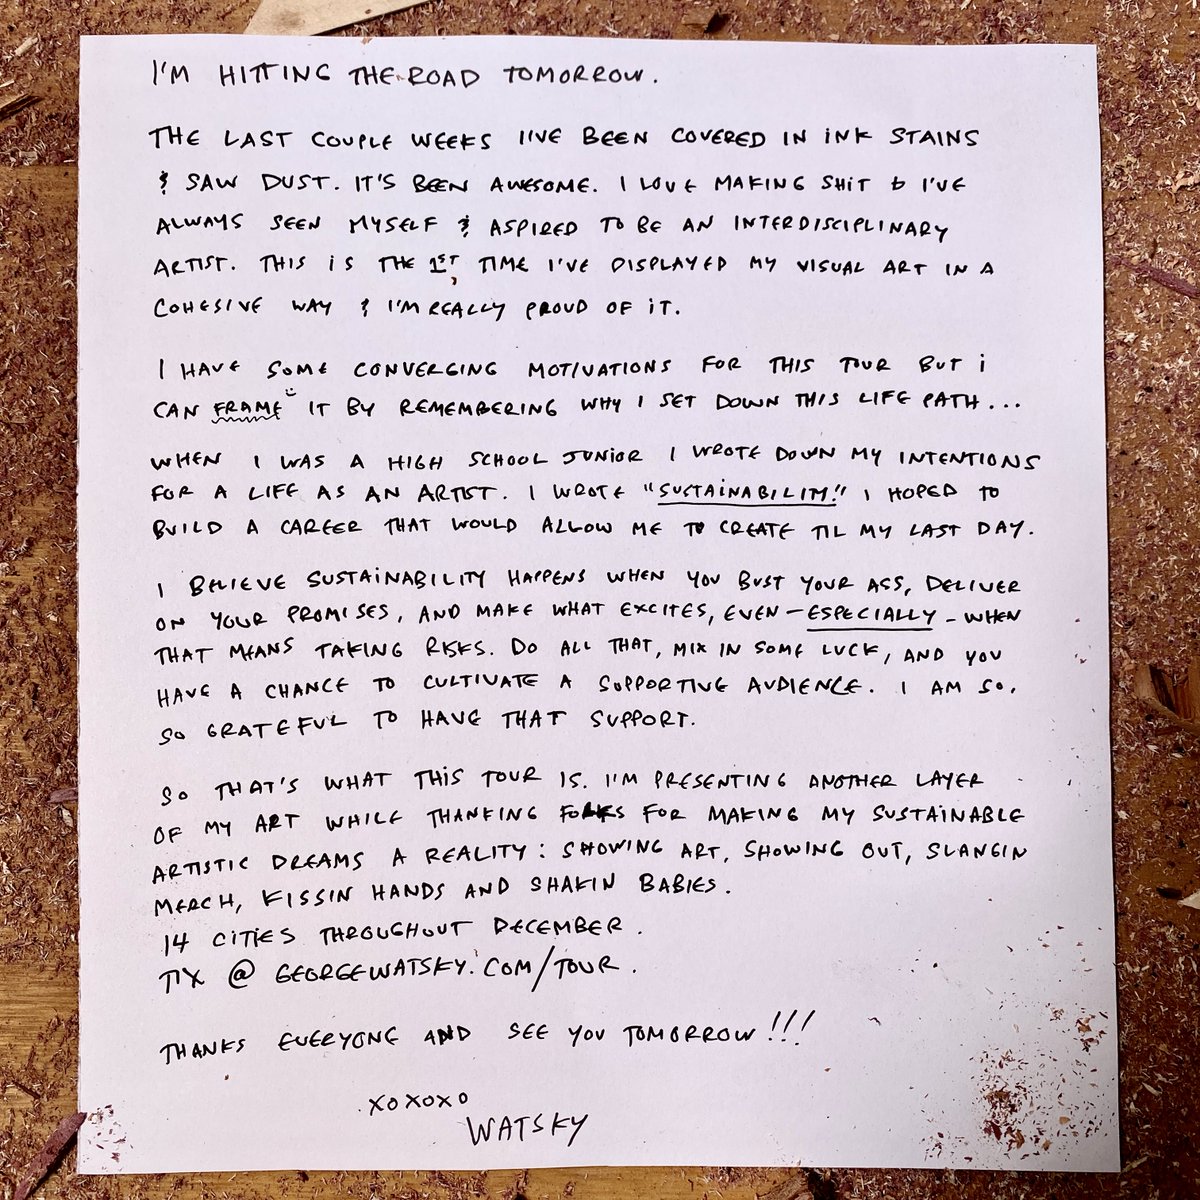 I'M HITTING THE ROAD TOMORROW.
THE LAST COUPLE WEEKS I'VE BEEN COVERED IN INK STAINS
& SAW DUST. IT'S BEEN AWESOME. I LOVE MAKING SHIT & I'VE
ALWAYS SEEN MYSELF & ASPIRED TO BE AN INTERDISCIPLINARY
ARTIST. THIS IS THE 1ST TIME I'VE DISPLAYED MY VISUAL ART IN A
COHESIVE WAY & I'M REALLY PROUD OF IT.
I HAVE SOME CONVERGING MOTIVATIONS FOR THIS TOUR BUT I
CAN FRAME IT BY REMEMBERING WHY I SET DOWN THIS LIFE PATH...
WHEN I WAS A HIGH SCHOOL JUNIOR I WROTE DOWN MY INTENTIONS
FOR A LIFE AS AN ARTIST. I WROTE "SUSTAINABILITY." I HOPED TO
BUILD A CAREER THAT WOULD ALLOW ME TO CREATE TIL MY LAST DAY.
I BELIEVE SUSTAINABILITY HAPPENS WHEN YOU BUST YOUR ASS, DELIVER
ON YOUR PROMISES, AND MAKE WHAT EXCITES, EVEN - ESPECIALLY - WHEN
THAT MEANS TAKING RISKS. DO ALL THAT, MIX IN SOME LUCK, AND YOU
HAVE A CHANCE TO CULTIVATE A SUPPORTIVE AUDIENCE. I AM SO,
SO GRATEFUL TO HAVE THAT SUPPORT.
SO THAT'S WHAT THIS TOUR IS. I'M PRESENTING ANOTHER LAYER
OF MY ART WHILE THANKING FOLKS FOR MAKING MY SUSTAINABLE
ARTISTIC DREAMS A REALITY: SHOWING ART, SHOWING OUT, SLANGIN
MERCH, KISSIN HANDS AND SHAKIN BABIES.
14 CITIES THROUGHOUT DECEMBER.
TIX @ GEORGEWATSKY.COM/TOUR.
THANKS EVERYONE AND SEE YOU TOMORROW!!!
XOXOXO
WATSKY